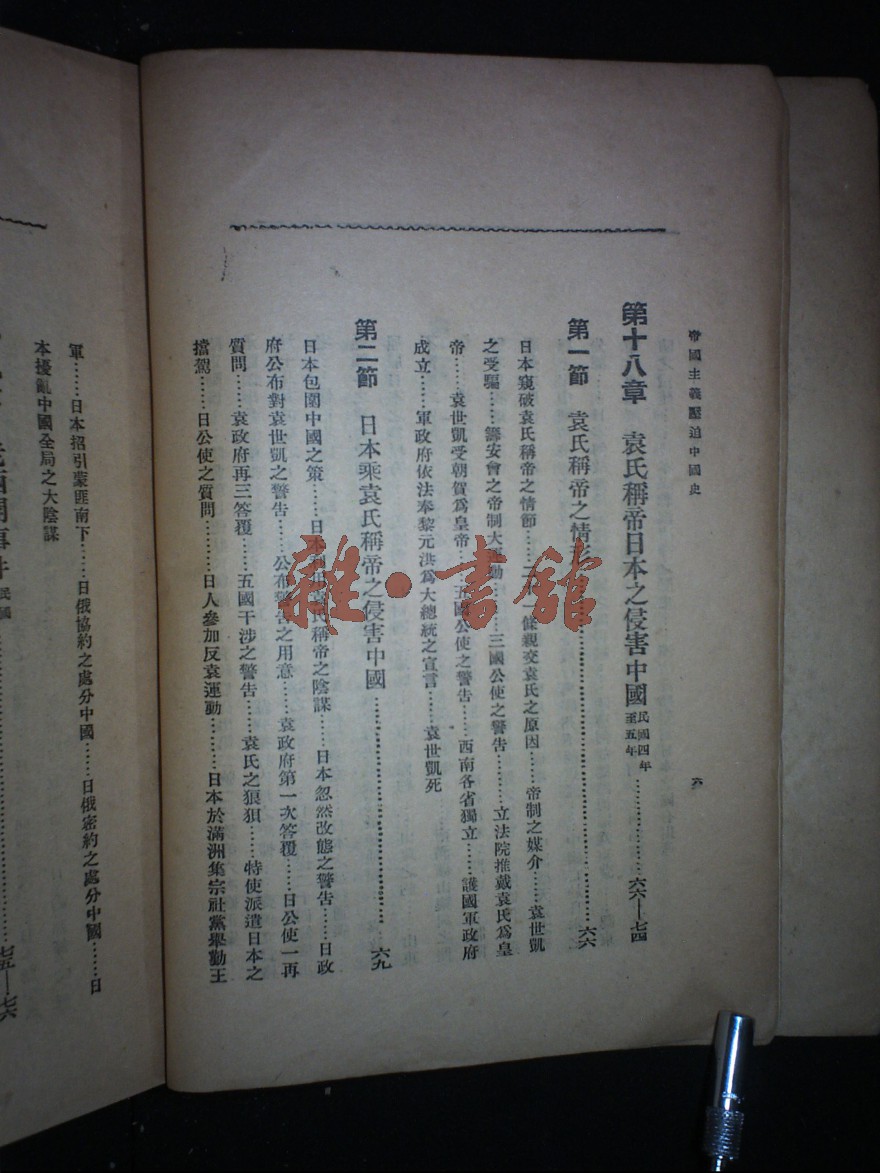 帝國主義壓迫中國史
六
第十八章 袁氏稱帝日本之侵害中國 民國四年至五年……六六—七四
第一節 袁氏稱帝之情……六六
日本窺破袁氏稱帝之情節……二十一條親交袁氏之原因……帝制之媒介……袁世凱
之受騙……籌安會之帝制大運動……三國公使之警告……立法院推戴袁氏爲皇
帝……袁世凱受朝賀爲皇帝……五國公使之警告……西南各省獨立……護國軍政府
成立……軍政府依法奉黎元洪爲大總統之宣言……袁世凱死
第二節 日本乘袁氏稱帝之侵害中國……六九
日本包圍中國之策……日本利用袁氏稱帝之陰謀……日本忽然改態之警告……日政
府公布對袁世凱之警告……公布警告之用意……袁政府第一次答覆……日公使一再
質問……袁政府再三答覆……五國干涉之警告……袁氏之狼狽……特使派遣日本之
擋駕……日公使之質問……日人參加反袁運動……日本於滿洲集宗社黨舉勤王
軍……日本招引蒙匪南下……日俄協約之處分中國……日俄密約之處分中國……日
本擾亂中國全局之大陰謀
西開事件 民國……七五—七六
雜·書館